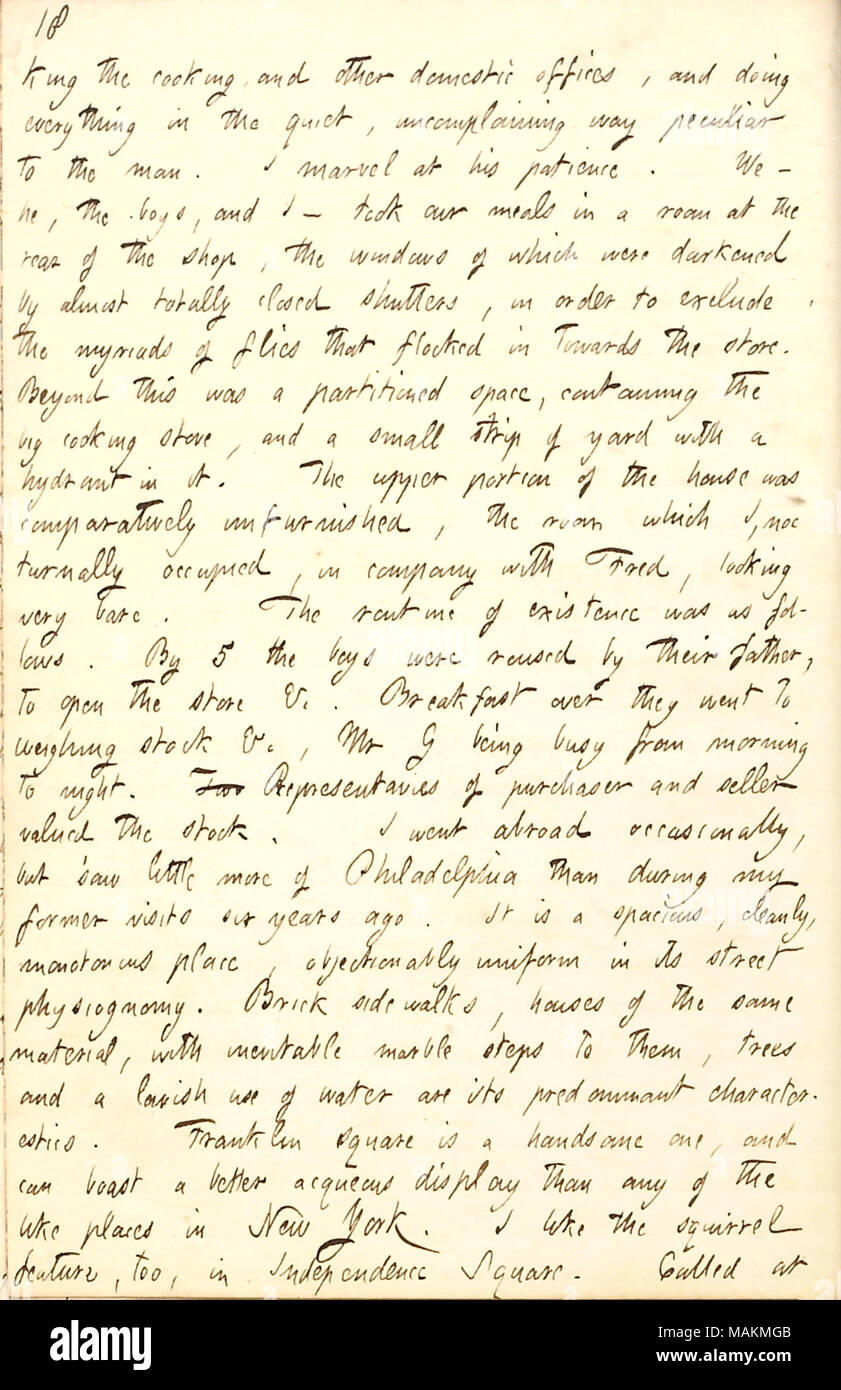 18
king the cooking and other domestic offices, and doing
everything in the quiet, uncomplaining way peculiar
to the man. I marvel at his patience. We —
he, the boys, and I — took our meals in a room at the
rear of the shop, the windows of which were darkened
by almost totally closed shutters, in order to exclude
the myriads of flies that flocked in towards the store.
Beyond this was a partitioned space, containing the
big cooking stove, and a small strip of yard with a
hydrant in it. The upper portion of the house was
comparatively unfurnished, the room which I, noc
turnally occupied, in company with Fred, looking
very bare. The routine of existence was as fol-
lows. By 5 the boys were roused by their father,
to open the store &c. Breakfast over they went to
weighing stock &c, Mr G being busy from morning
to night. Two Representavies of purchaser and seller
valued the stock. I went abroad occasionally,
but saw little more of Philadelphia than during my
former visits six years ago. It is a spacious, cleanly,
monotonous place, objectionably uniform in its street
physiognomy. Brick sidewalks, houses of the same
material, with inevitable marble steps to them, trees
and a lavish use of water are its predominant character-
estics. Franklin square is a handsome one, and
can boast a better acqueous display than any of the
like places in New York. I like the squirrel
feature, too, in Independence Square. Called at
alamy
Image ID: MAKMGB
www.alamy.com